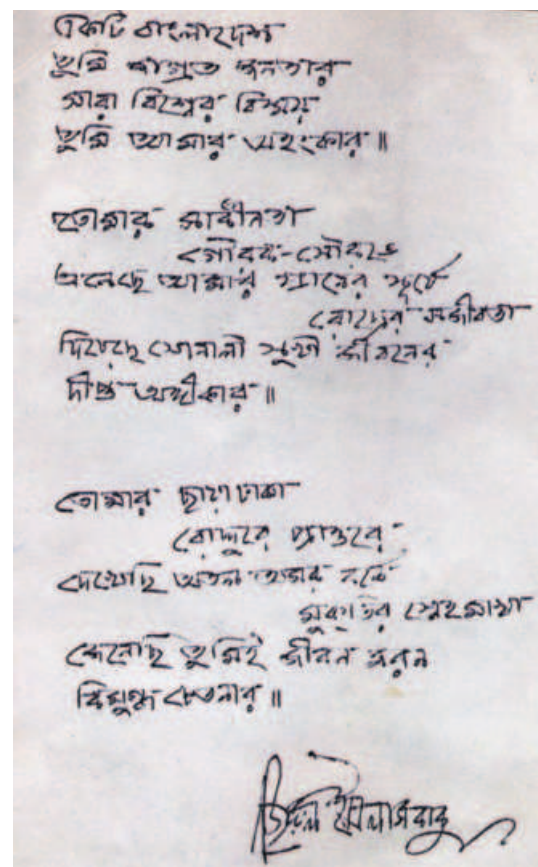 একটি বাংলাদেশ
তুমি জাগ্রত জনতার
সারা বিশ্বের বিস্ময়
তুমি আমার অহংকার॥
তোমার স্বাধীনতা
গৌরব-সৌরভে
এনেছে আমার প্রাণের সূর্যে
রোদ্রের সজীবতা
দিয়েছে সোনালী সুখী জীবনের
দীপ্ত অঙ্গীকার॥
তোমার ছায়াঢাকা
রোদ্দুরে প্রান্তরে
দেখেছি অতল অমর বর্ণে
মুক্তির স্নেহমাখা
জেনেছি তুমিই জীবন মরন
বিমুগ্ধ চেতনার॥